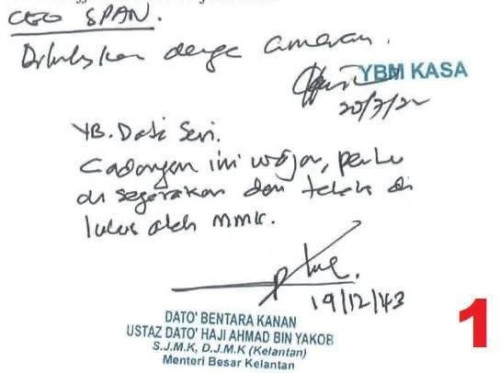 CEO SPAN.
Diluluskan dengan amaran.
YBM KASA
20/7/22
YB. Dato Seri.
Cadangan ini wajar, perlu
disegerakan dan telah di
lulus oleh MMK.
19/12/43
DATO' BENTARA KANAN
USTAZ DATO' HAJI AHMAD BIN YAKOB
S.J.M.K, D.J.M.K (Kelantan)
Menteri Besar Kelantan
1